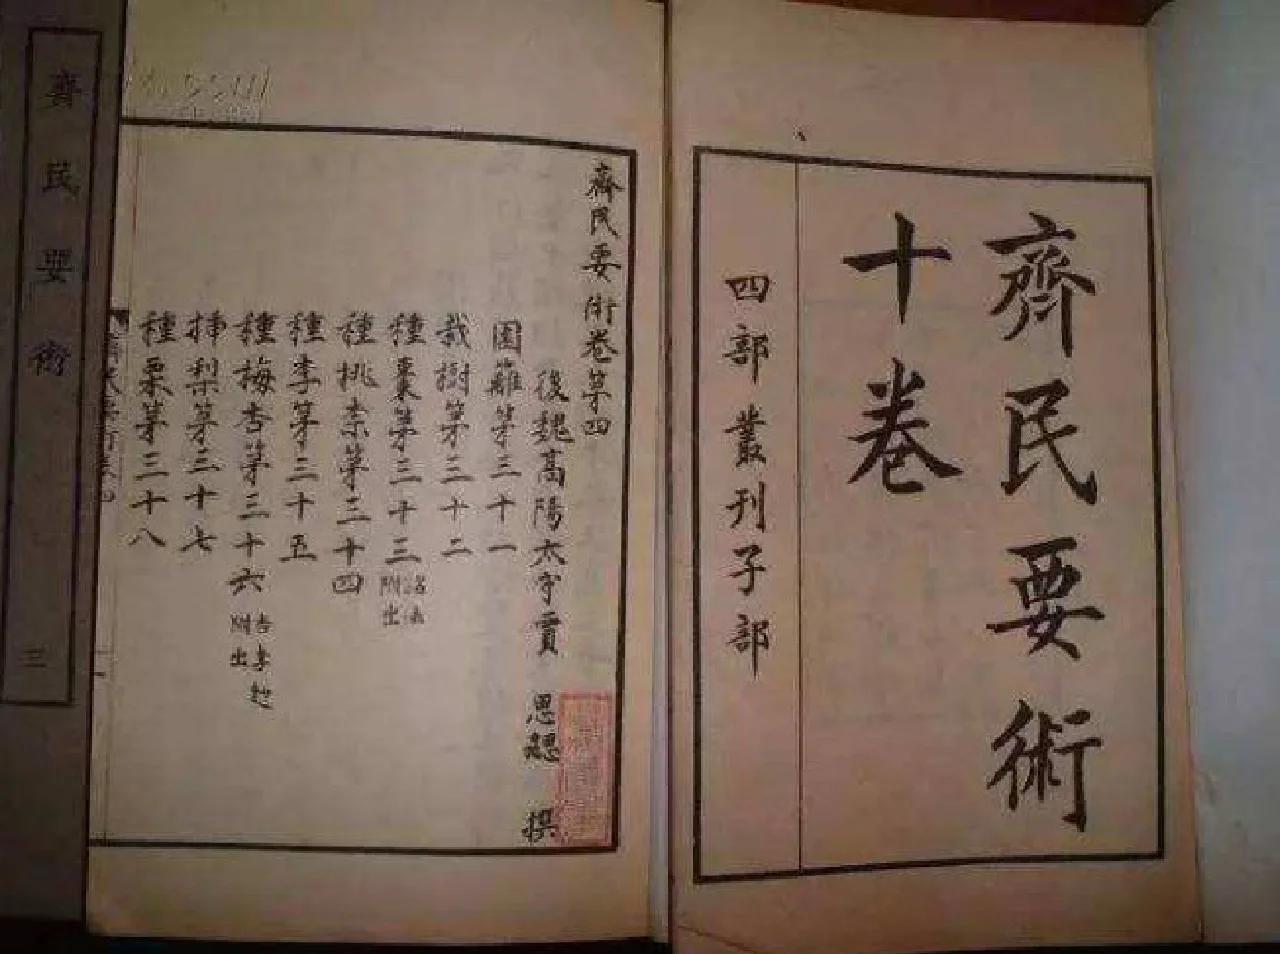 齊民要術
十卷
四部叢刊子部
齊民要術卷第四
後魏高陽太守賈 思勰 撰
園籬第三十一
栽樹第三十二
種棗第三十三 諸法附出
種桃柰第三十四
種李第三十五
種梅杏第三十六 杏李𪍑附出
插梨第三十七
種栗第三十八
齊民要術
三